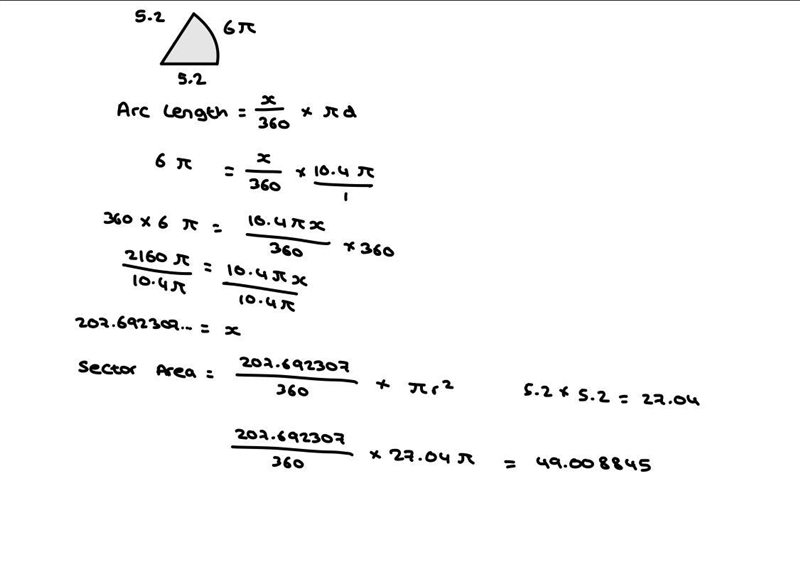 5.2
6π
5.2
Arc Length = x/360 × πd
6 π = x/360 × 10.4 π/1
360 × 6 π = 10.4πx/360 × 360
2160 π/10.4π = 10.4πx/10.4π
207.692307... = x
Sector Area = 207.692307/360 × πr²
5.2 × 5.2 = 27.04
207.692307/360 × 27.04 π = 49.008845